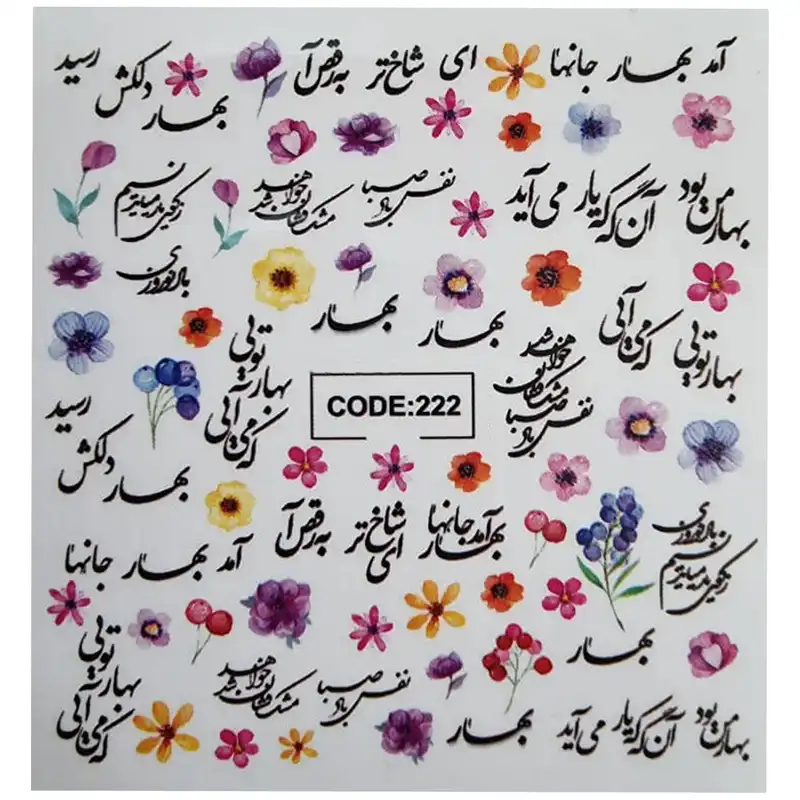 آمد بهار جانها ای شاخ تر به رقص آ
بهار دلکش رسید
بهار من بود آن گه که یار می آید
نفس باد صبا مشک فشان خواهد شد
بهار
بهار
بهار تویی که می آیی
بهار تویی که می آیی
CODE:222
نفس باد صبا مشک فشان خواهد شد
بهار دلکش رسید
آمد بهار جانها ای شاخ تر به رقص آ
آمد بهار جانها
بهار
بهار تویی که می آیی
نفس باد صبا مشک فشان خواهد شد
بهار من بود آن گه که یار می آید
بهار